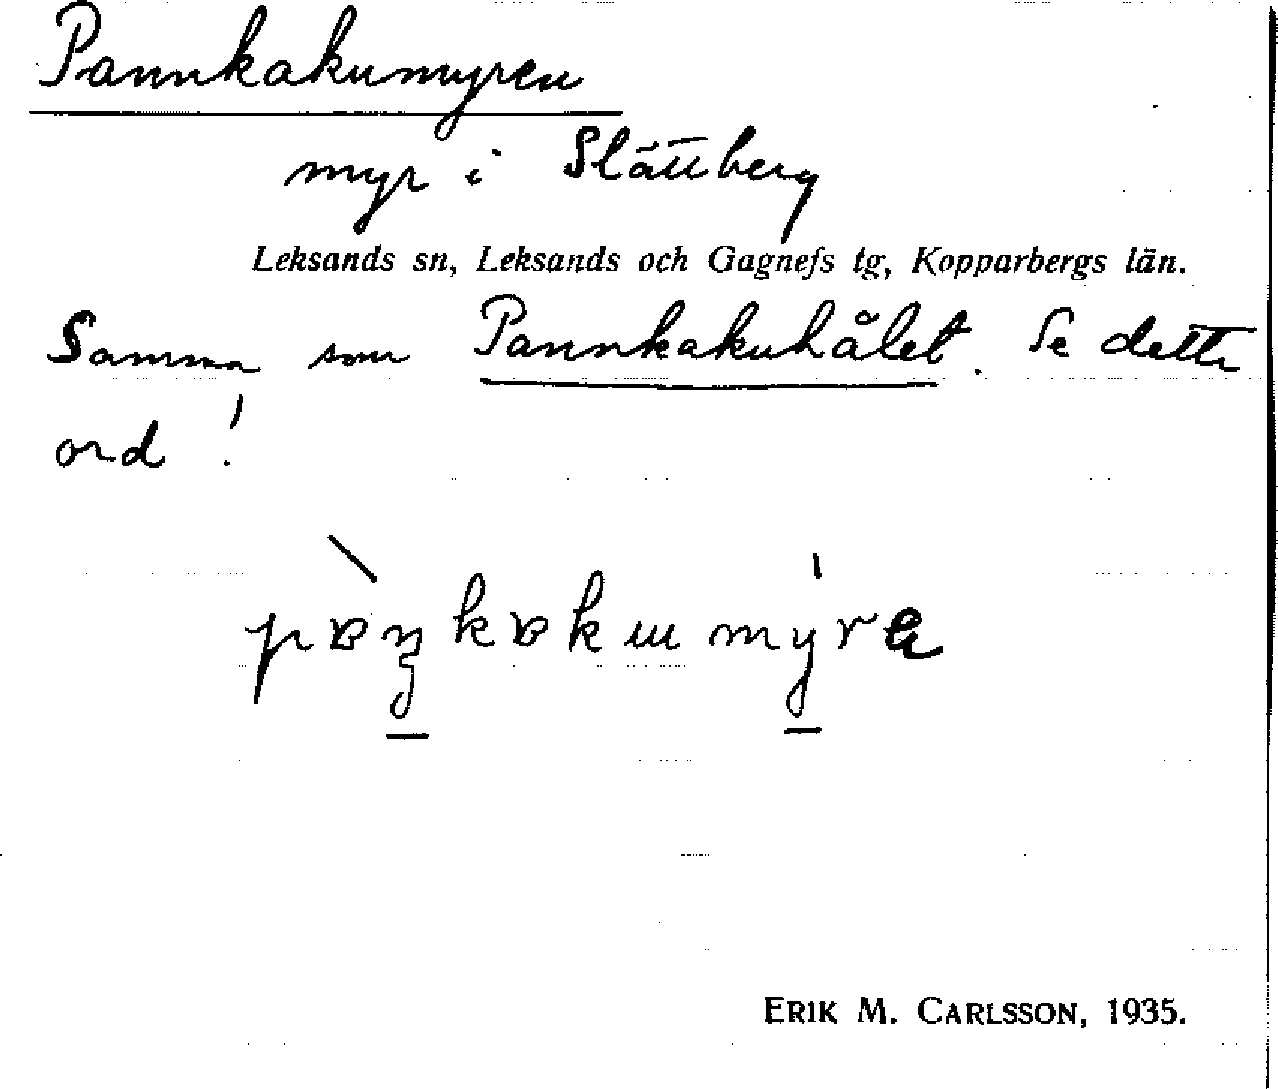 Pannkakumyren
myr i Slättberg
Leksands sn, Leksands och Gagnefs tg, Kopparbergs län.
Samma som Pannkakuhålet. Se detta
ord!
ERIK M. CARLSSON, 1935.